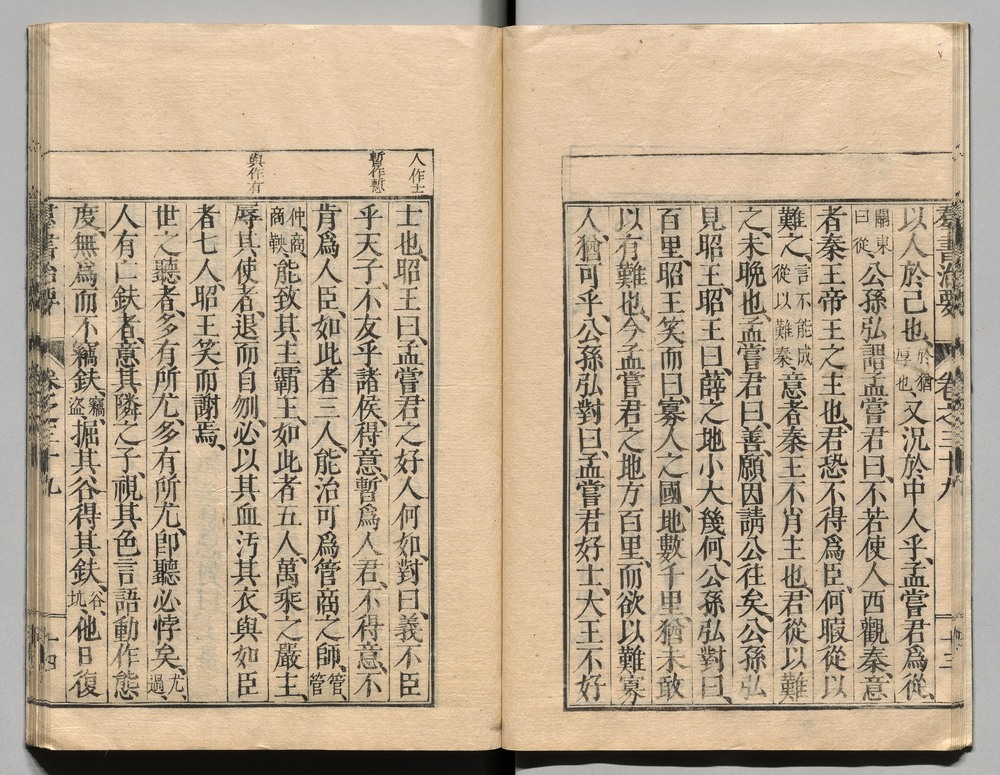 羣書治要 卷之三十九 十三
以人於己也、於猶厚也、又況於中人乎、孟嘗君爲從、
關東曰從、公孫弘謂孟嘗君曰、不若使人西觀秦、意
者秦王帝王之主也、君恐不得爲臣、何暇從以
難之、言不能成從以難秦、意者秦王不肖主也、君從以難
之、未晚也、孟嘗君曰、善、願因請公往矣、公孫弘
見昭王、昭王曰、薛之地小大幾何、公孫弘對曰、
百里、昭王笑而曰、寡人之國、地數千里、猶未敢
以有難也、今孟嘗君之地方百里、而欲以難寡
人、猶可乎、公孫弘對曰、孟嘗君好士、大王不好
人作士
暫作慙
與作有
士也、昭王曰、孟嘗君之好人何如、對曰、義不臣
乎天子、不友乎諸侯、得意、暫爲人君、不得意、不
肯爲人臣、如此者三人、能治可爲管商之師、管管
仲商商鞅、能致其主霸王、如此者五人、萬乘之嚴主、
辱其使者、退而自刎、必以其血汚其衣、與如臣
者七人、昭王笑而謝焉、
世之聽者、多有所尤、多有所尤、卽聽必悖矣、尤過
人有亡鈇者、意其隣之子、視其色言語動作態
度、無爲而不竊鈇、竊盜、掘其谷得其鈇、谷坑、他日復
羣書治要 卷之三十九 十四